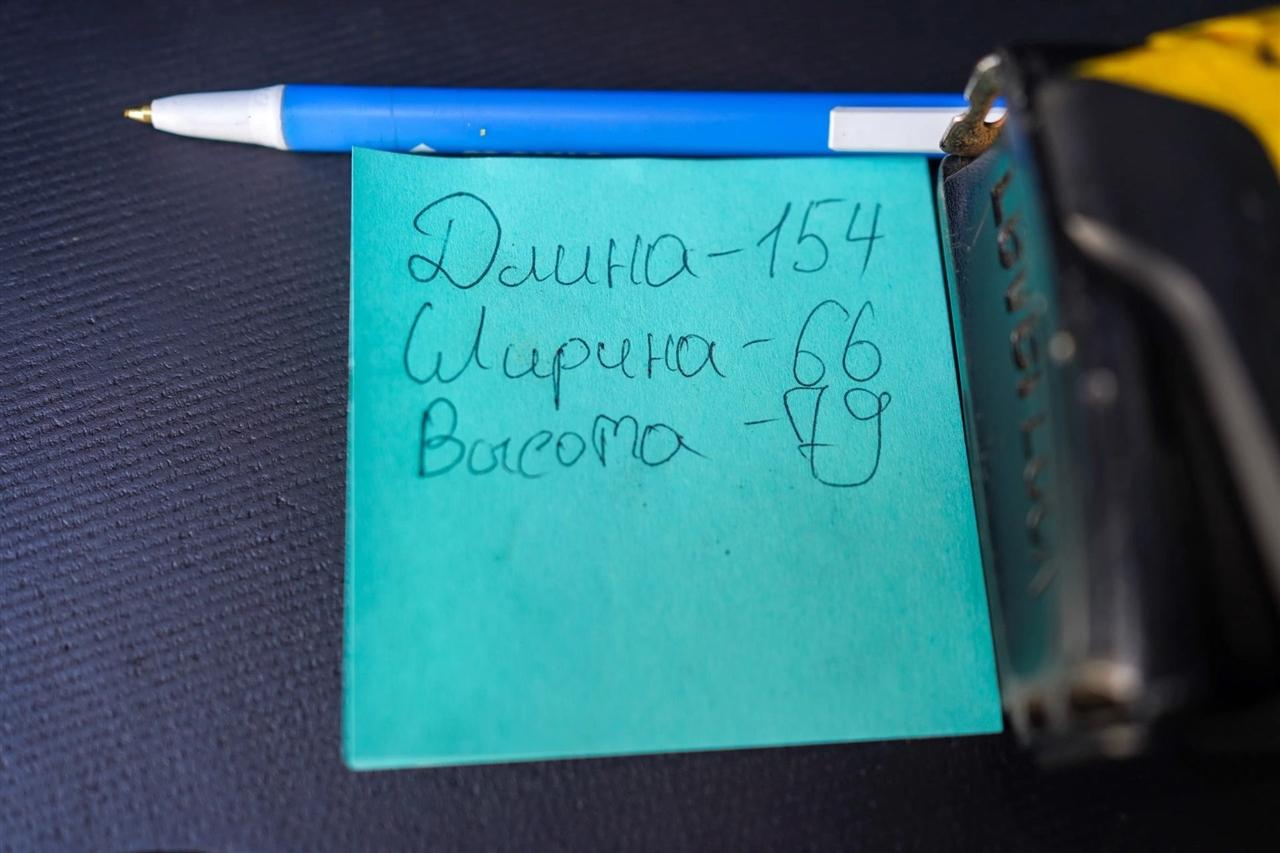 Длина - 154
Ширина - 66
Высота - 79